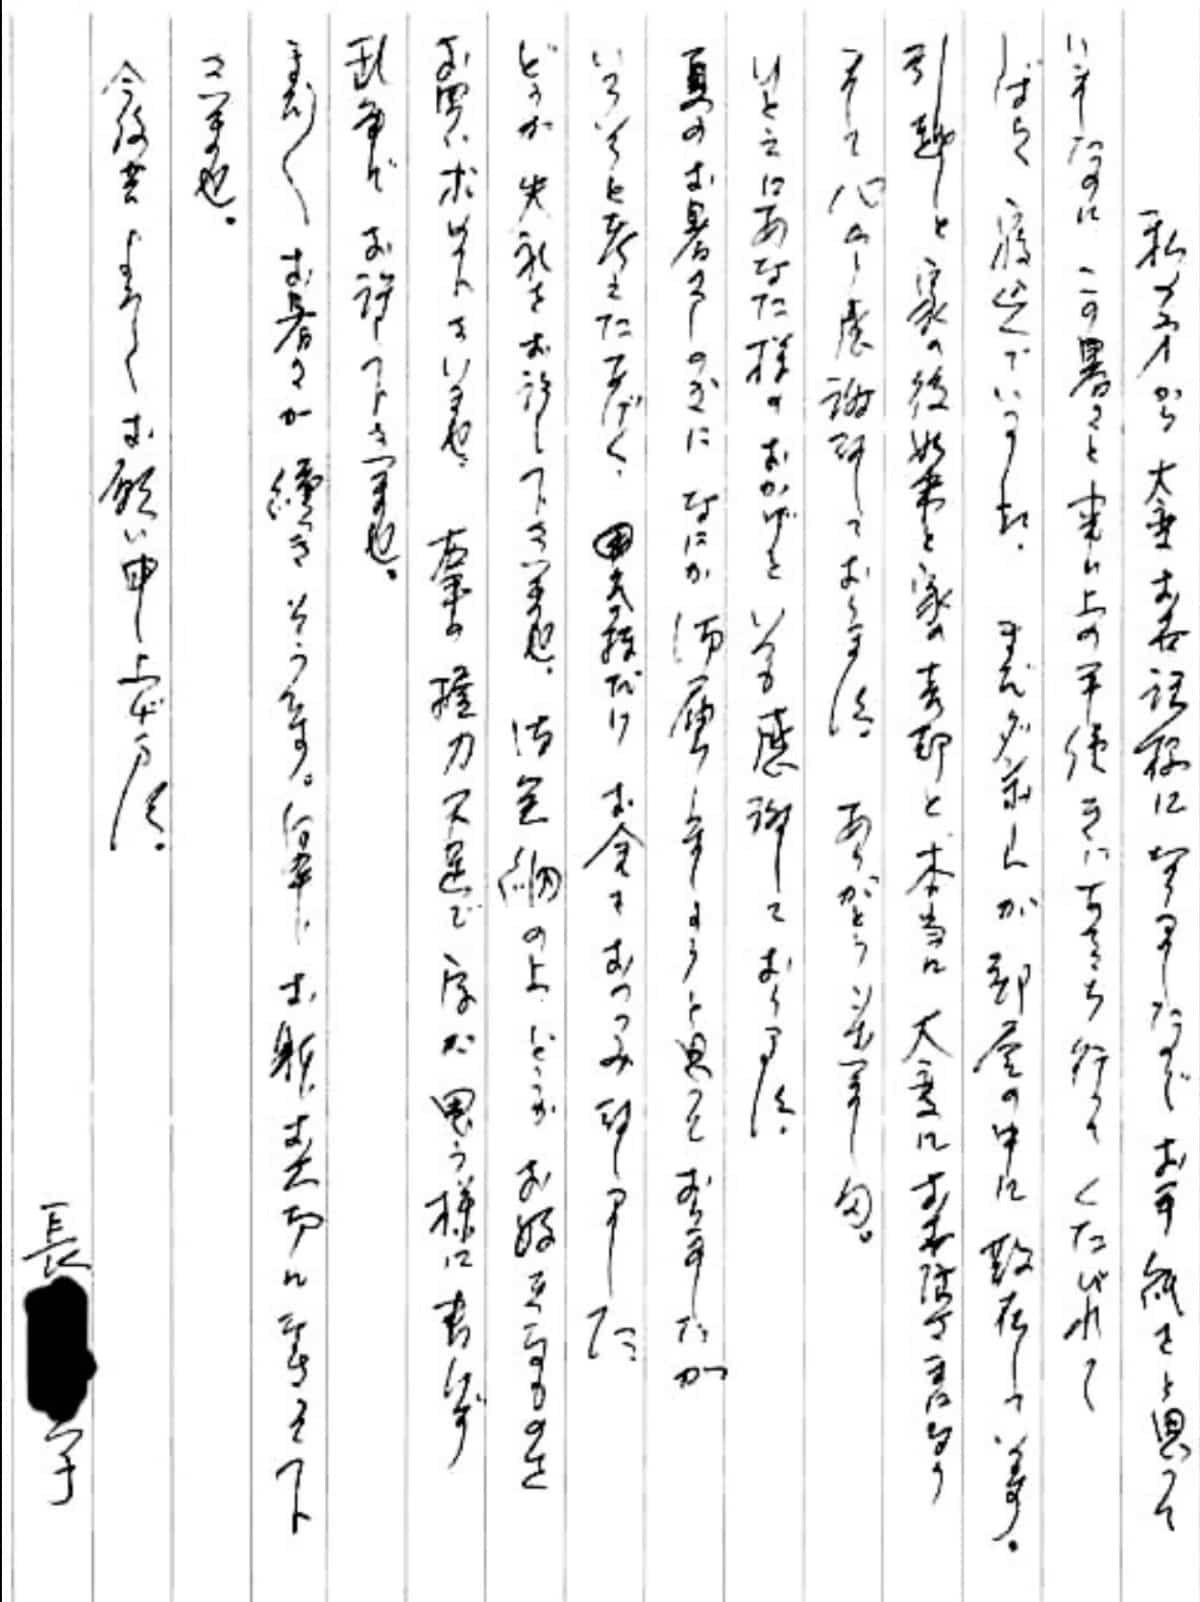 私の方から大変お世話様になりましたので お手紙をと思って
いましたのに この暑さと 年のせいで くたびれて
しばらく 寝込んでいました。まだダンボールが部屋の中に散在しています。
引越しと家の後始末と家の売却と 本当に大変にお世話さまになり
まして 心から感謝致しております。ありがとうございました。
ひとえにあなた様のおかげと いつも感謝しております。
夏のお暑さしのぎに なにか御届けしましょうと思っておりましたが
いろいろと考えたあげく、お金をおつつみ致しました
どうか 失礼をお許し下さいませ。御笑納の上 どうか お好きなものを
お買いもとめ下さいませ。右手の握力不足で 字が思う様に書けず
乱筆で お許し下さいませ。
まだまだ お暑さが 続きそうです。何卒 お身お大切になさって下
さいませ。
今後共よろしくお願い申し上げます。
長 子